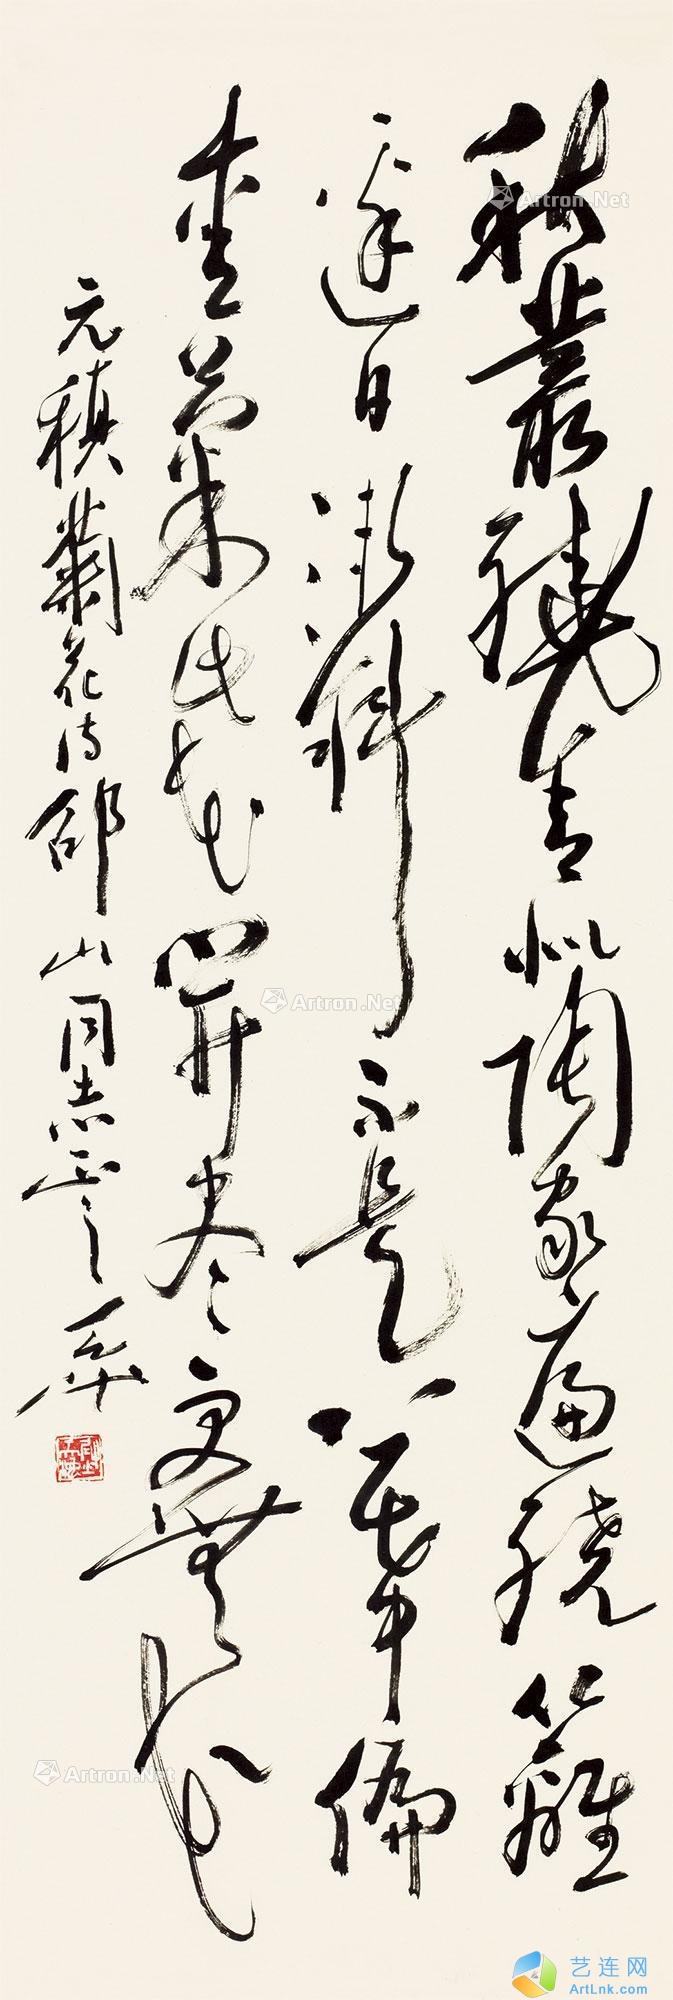 秋叢繞舍似陶家遍繞籬
邊日漸斜不是花中偏
愛菊此花開尽更無花
元稹菊花诗邵山同志正之
Artron.Net
Artron.Net
Artron.Net
艺连网
ArtLnk.com